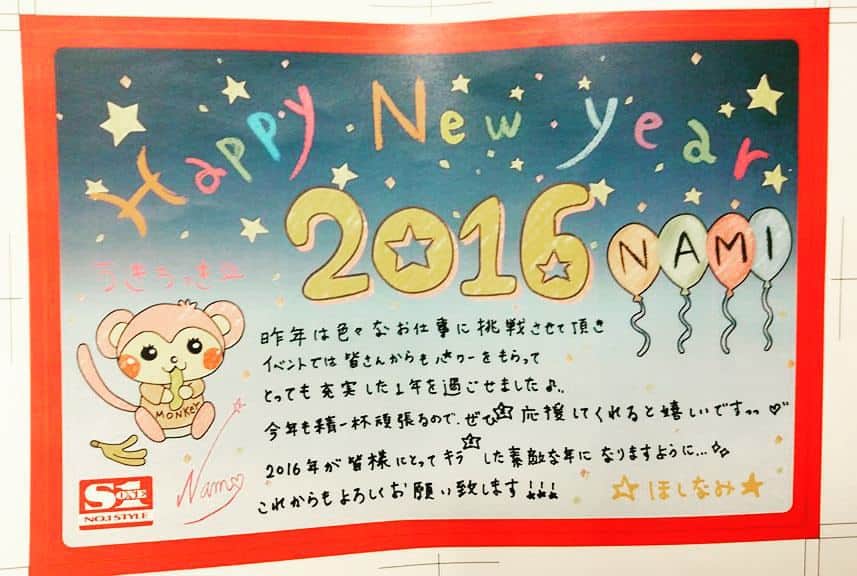 Happy New year
2016
NAMI
うきうっきー
昨年は色々なお仕事に挑戦させて頂き
イベントでは皆さんからもパワーをもらって
とっても充実した1年を過ごせました♪..
今年も精一杯頑張るので、ぜひ☆応援してくれると嬉しいですっっ♡"
2016年が皆様にとってキラ☆した素敵な年になりますように...☆
これからもよろしくお願い致します!!!
MONKEY
Nami♡
☆ほしなみ★
S1
ONE
NO.1 STYLE